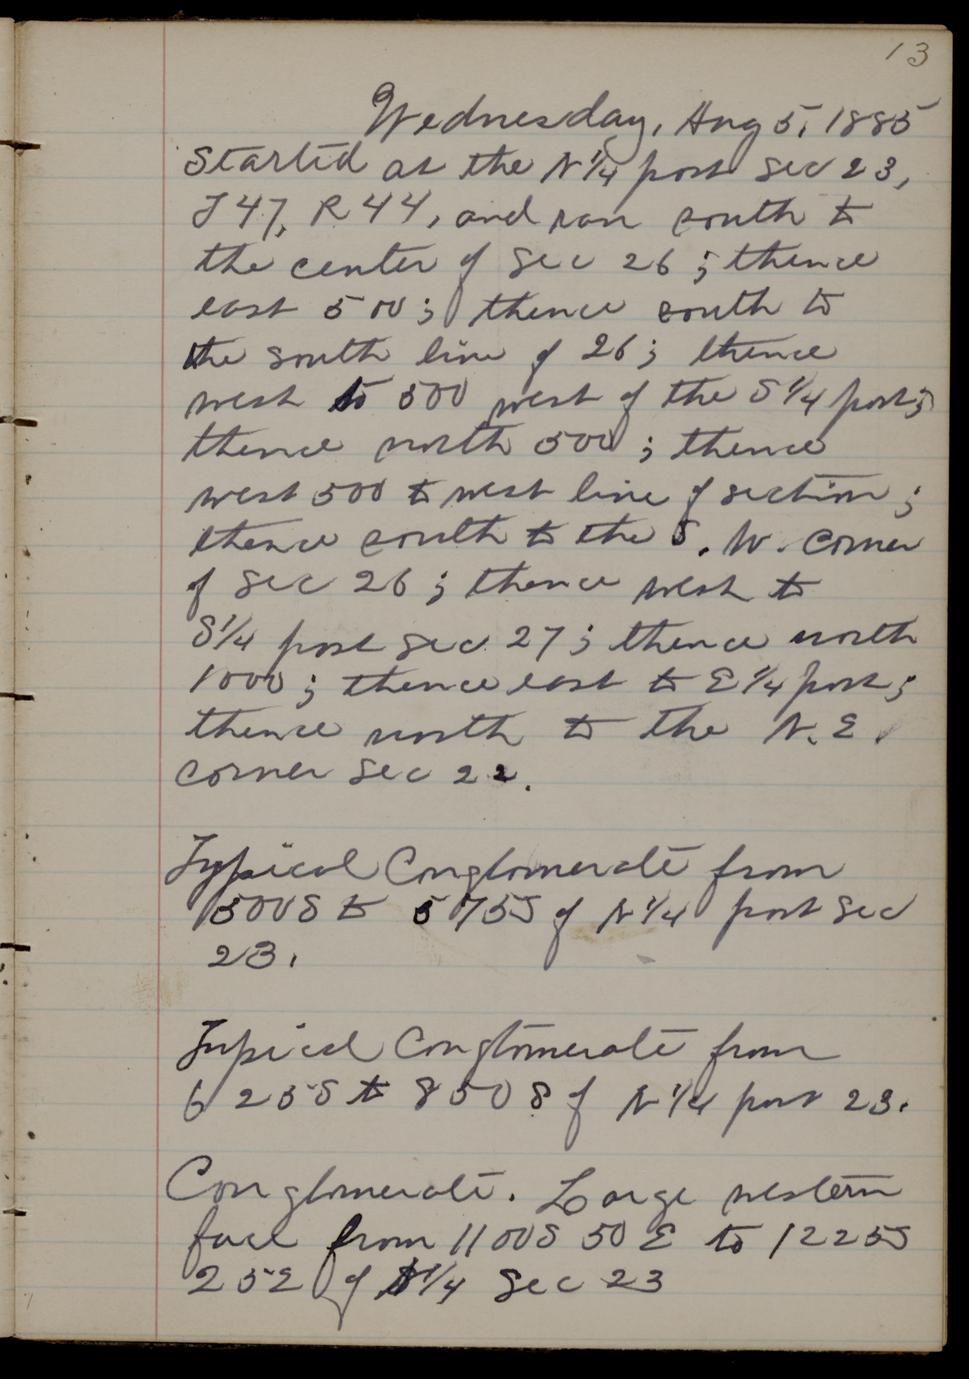 13
Wednesday, Aug 5, 1885
Started at the N 1/4 post Sec 23,
T 47, R 44, and ran south to
the center of Sec 26; thence
east 500; thence south to
the south line of 26; thence
west to 500 west of the S 1/4 post;
thence north 500; thence
west 500 to west line of section;
thence south to the S. W. corner
of Sec 26; thence west to
S 1/4 post Sec 27; thence north
1000; thence east to E 1/4 post;
thence north to the N. E.
corner Sec 22.
Typical Conglomerate from
500 S to 575 S of N 1/4 post Sec
23.
Typical Conglomerate from
625 S to 850 S of N 1/4 post 23.
Conglomerate. Large western
face from 1100 S 50 E to 1225 S
25 E of N 1/4 Sec 23